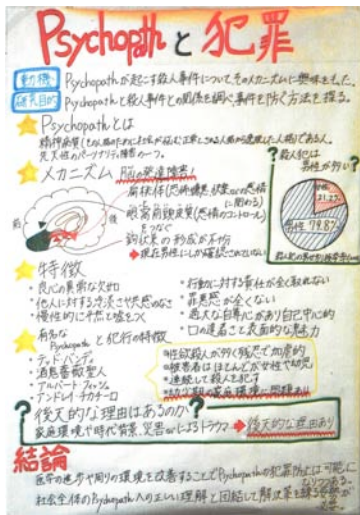 Psychopathと犯罪
動機 Psychopathが起こす殺人事件についてそのメカニズムに興味をもった。
研究目的 Psychopathと殺人事件との関係を調べ、事件を防ぐ方法を探る。
Psychopathとは
精神病質(その人格のために社会が悩む、正常とされる人格から逸脱した人格)である人。
先天性のパーソナリティ障害の一つ。
メカニズム 脳の発達障害!
前 後
扁桃体(恐怖
に関わる)
眼窩前頭皮質(感情のコントロール)
をつなぐ
鈎状束の形成が不十分
→現在男性にしか確認されていない
?殺人犯は
男性が多い?
女性
男性
特徴
・良心の異常な欠如
・他人に対する冷淡さや共感のなさ
・慢性的に平然と嘘をつく
・行動に対する責任が全く取れない
・罪悪感が全くない
・過大な自尊心があり自己中心的
・口の達者さと表面的な魅力
有名な
Psychopathと犯行の特徴
・テッド・バンディ
・酒鬼薔薇聖人
・アルバート・フィッシュ
・アンドレイ・チカチーロ
・性欲殺人が多く残忍で加虐的
・被害者はほとんどが女性や幼児
・連続して殺人を犯す
・幼少期の家庭環境に問題あり
?後天的な理由はあるのか?
家庭環境や時代背景、災害etcによるトラウマ→後天的な理由あり
結論
医学の進歩や周りの環境を改善することでPsychopathの犯罪防止は可能に
なりつつある。
社会全体のPsychopathへの正しい理解と団結して解決策を練る姿勢が